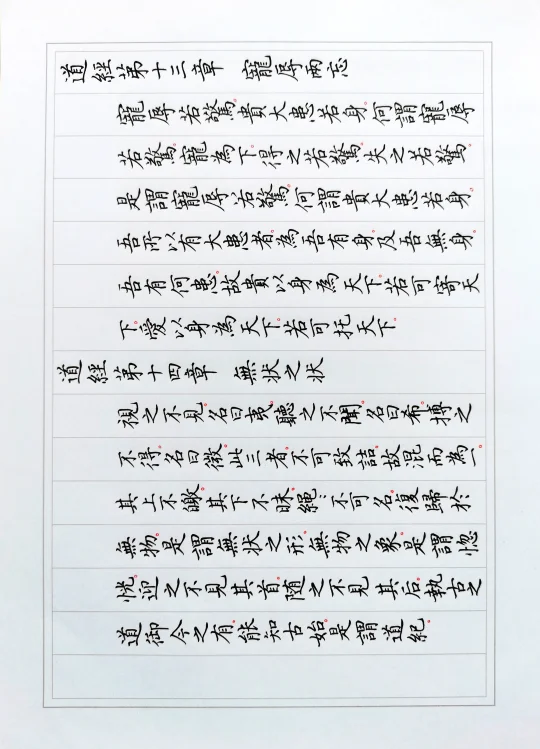 道經第十三章　寵辱兩忘
寵辱若驚。貴大患若身。何謂寵辱
若驚。寵為下。得之若驚。失之若驚。
是謂寵辱若驚。何謂貴大患若身。
吾所以有大患者。為吾有身。及吾無身。
吾有何患。故貴以身為天下。若可寄天
下。愛以身為天下。若可托天下。
道經第十四章　無狀之狀
視之不見。名曰夷。聽之不聞。名曰希。搏之
不得。名曰微。此三者。不可致詰。故混而為一。
其上不皦。其下不昧。繩:不可名。復歸於
無物。是謂無狀之形。無物之象。是謂惚
恍。迎之不見其首。隨之不見其后。執古之
道。御今之有。能知古始。是謂道紀。